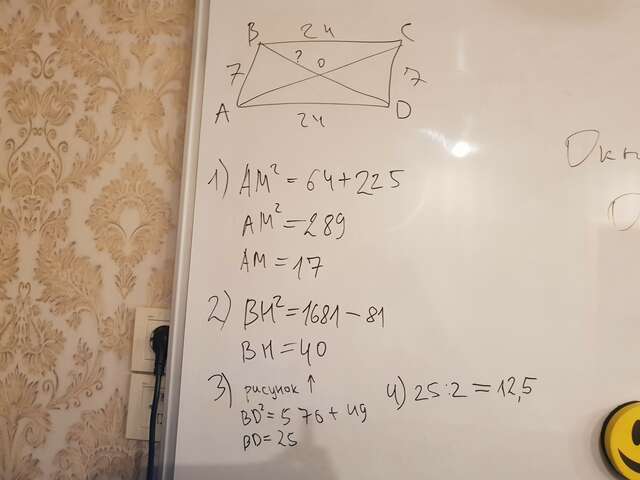 B 24 C
? O
7 7
A D
24
1) AM² = 64 + 225
AM² = 289
AM = 17
2) BH² = 1681 - 81
BH = 40
3) рисунок ↑
BD² = 576 + 49
BD = 25
4) 25 : 2 = 12,5